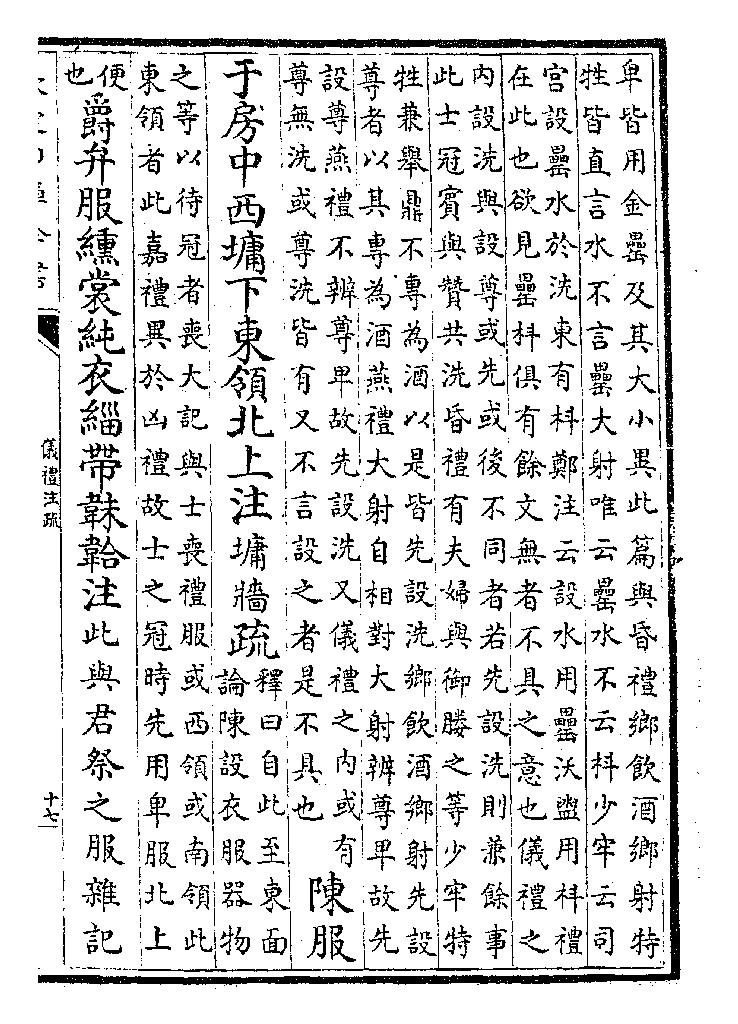 卑皆用金罍及其大小異此篇與昏禮鄉飲酒鄉射特
牲皆直言水不言罍大射唯云罍水不云枓少牢云司
宫設罍水於洗東有枓鄭注云設水用罍沃盥用枓禮
在此也欲見罍枓俱有餘文無者不具之意也儀禮之
内設洗與設尊或先或後不同者若先設洗則兼餘事
此士冠賓與贊共洗昏禮有夫婦與御媵之等少牢特
牲兼舉鼎不專為酒以是皆先設洗鄉飲酒鄉射先設
尊者以其專為酒燕禮大射自相對大射辨尊卑故先
設尊燕禮不辨尊卑故先設洗又儀禮之内或有
尊無洗或尊洗皆有又不言設之者是不具也
陳服
于房中西墉下東領北上注墉牆疏
釋曰自此至東面
論陳設衣服器物
之等以待冠者喪大記與士喪禮服或西領或南領此
東領者此嘉禮異於凶禮故士之冠時先用卑服北上
便
也
爵弁服纁裳純衣緇帶韎韐注此與君祭之服雜記
儀禮注疏
十七